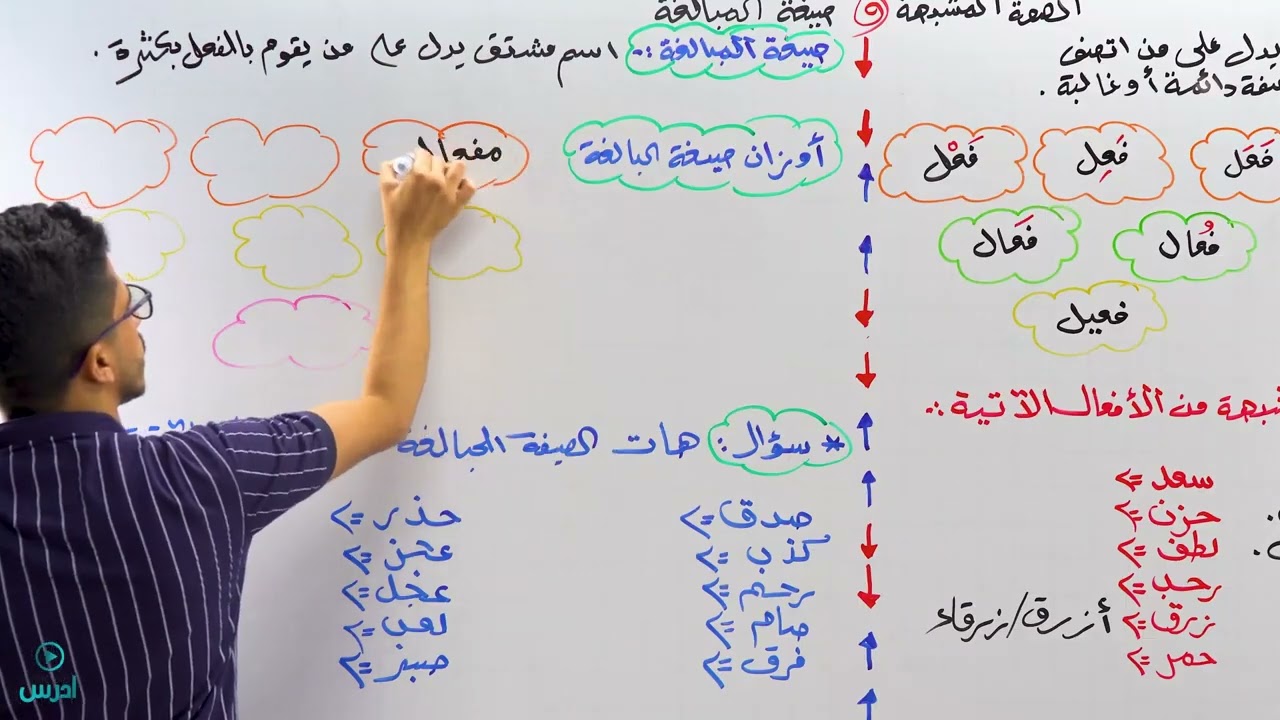 الصفة المشبهة و صيغة المبالغة
يدل على من اتصف
صفة دائمة أو غالبة .
فَعَل
فَعِل
فَعْل
فُعال
فَعَال
فعيل
شبهة من الأفعال الآتية :.
سعد =>
حزن =>
لطف =>
رحب =>
زرق => أزرق/زرقاء
حمر =>
صيغة المبالغة :. اسم مشتق يدل على من يقوم بالفعل بكثرة .
أوزان صيغة المبالغة
مفعال
* سؤال : هات الصيغة المبالغة
صدق =>
كذب =>
رحم =>
صام =>
فرق =>
حذر =>
عجل =>
لعن =>
صبر =>
ادرس